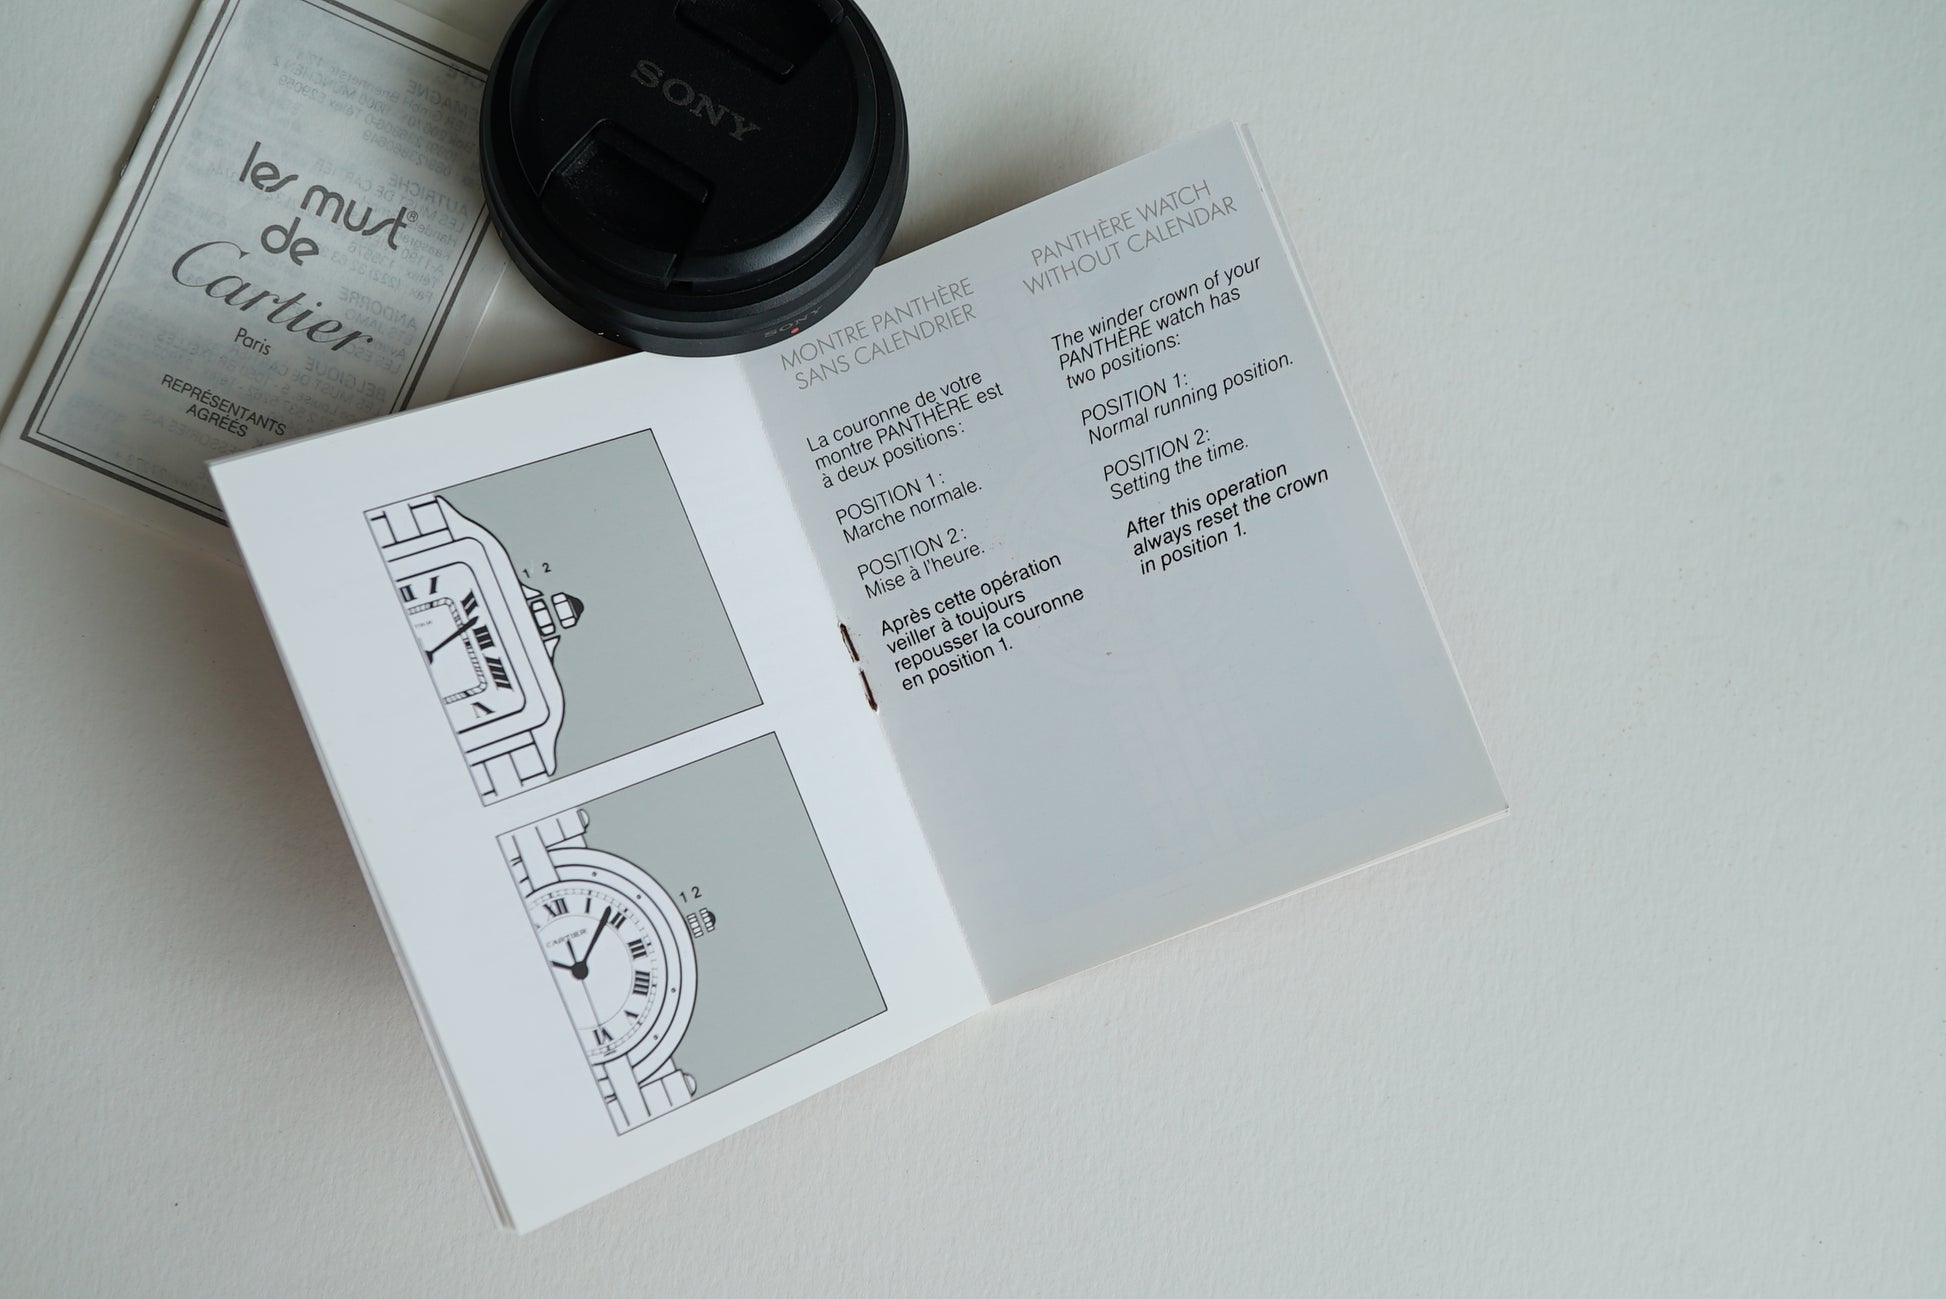 les must®
de
Cartier
Paris
REPRÉSENTANTS
AGRÉÉS
SONY
SONY
MONTRE PANTHÈRE
SANS CALENDRIER
La couronne de votre
montre PANTHÈRE est
à deux positions:
POSITION 1:
Marche normale.
POSITION 2:
Mise à l'heure.
Après cette opération
veiller à toujours
repousser la couronne
en position 1.
PANTHÈRE WATCH
WITHOUT CALENDAR
The winder crown of your
PANTHÈRE watch has
two positions:
POSITION 1:
Normal running position.
POSITION 2:
Setting the time.
After this operation
always reset the crown
in position 1.
1 2
1 2
XII I II III IIII V VI
CARTIER